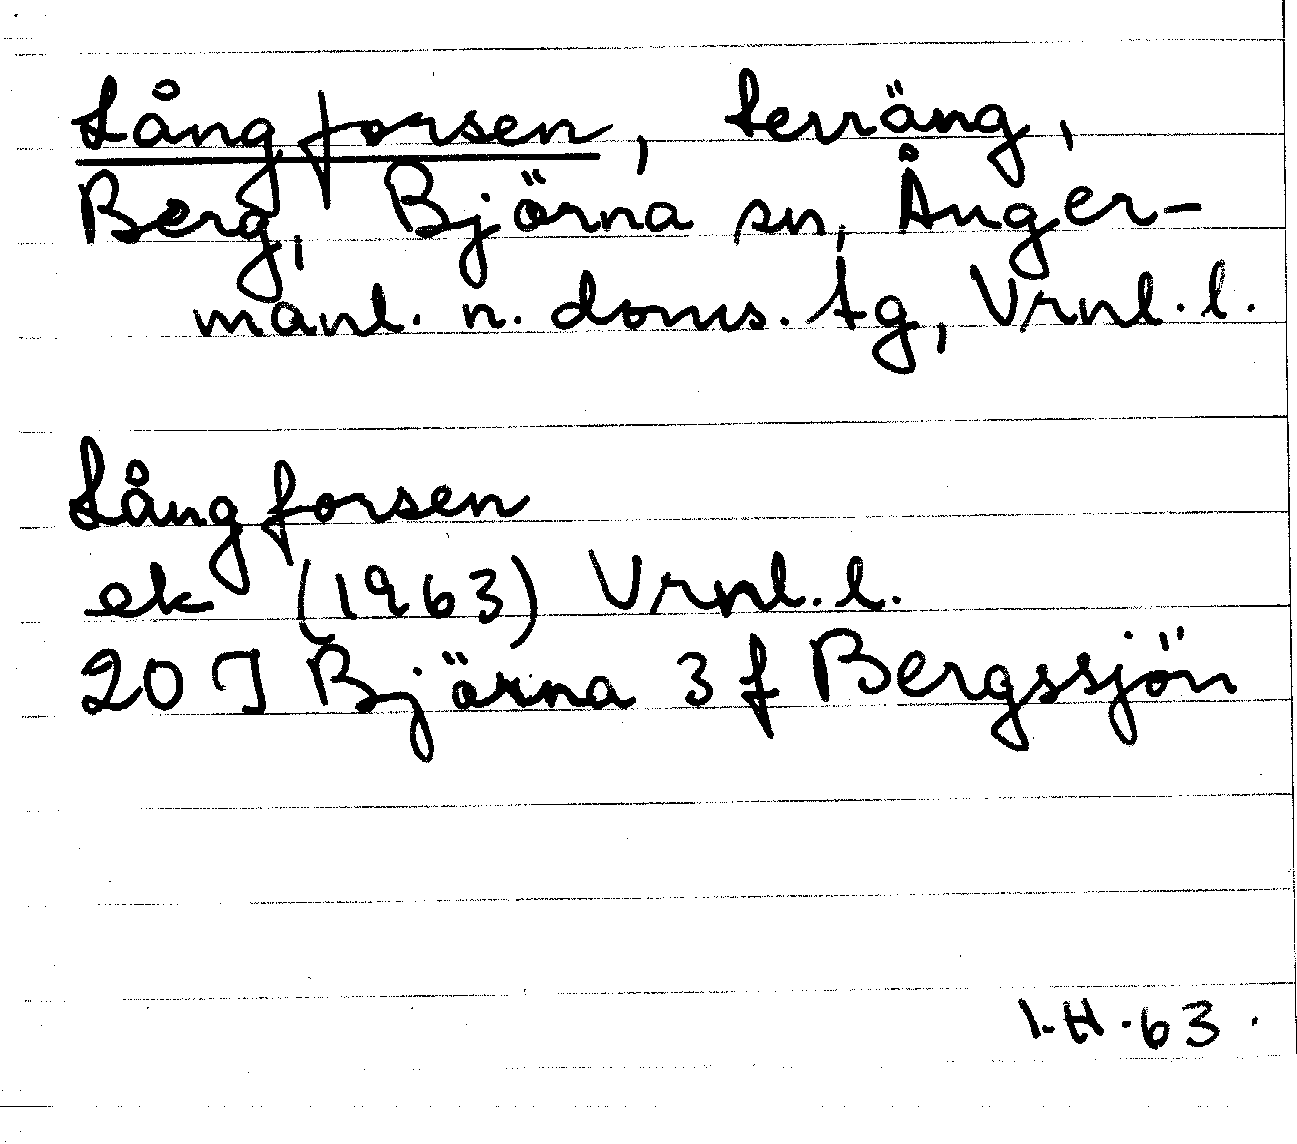 Långforsen, terräng,
Berg, Björna sn, Ånger-
manl. n. doms. tg, Vrnl. l.
Långforsen
ek (1963) Vrnl. l.
20 J Björna 3 f Bergssjön
I.H.63.